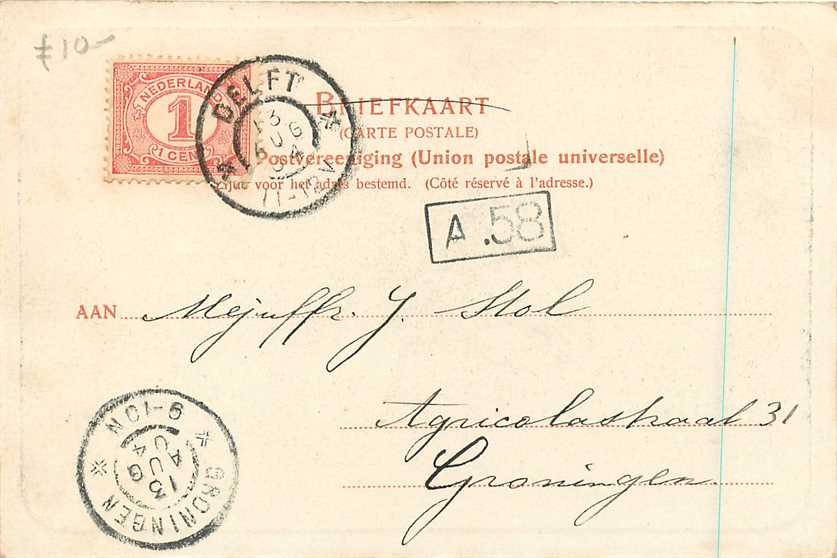 f 10-
NEDERLAND
1
1 CENT
DELFT
13
AUG
04
11-12V
BRIEFKAART
(CARTE POSTALE)
Postvereeniging (Union postale universelle)
Zijde voor het adres bestemd. (Côté réservé à l'adresse.)
A .58
AAN Mejuffr. J. Stol
Agricolastraat 31
Groningen.
GRONINGEN
13
AUG
04
9-10N